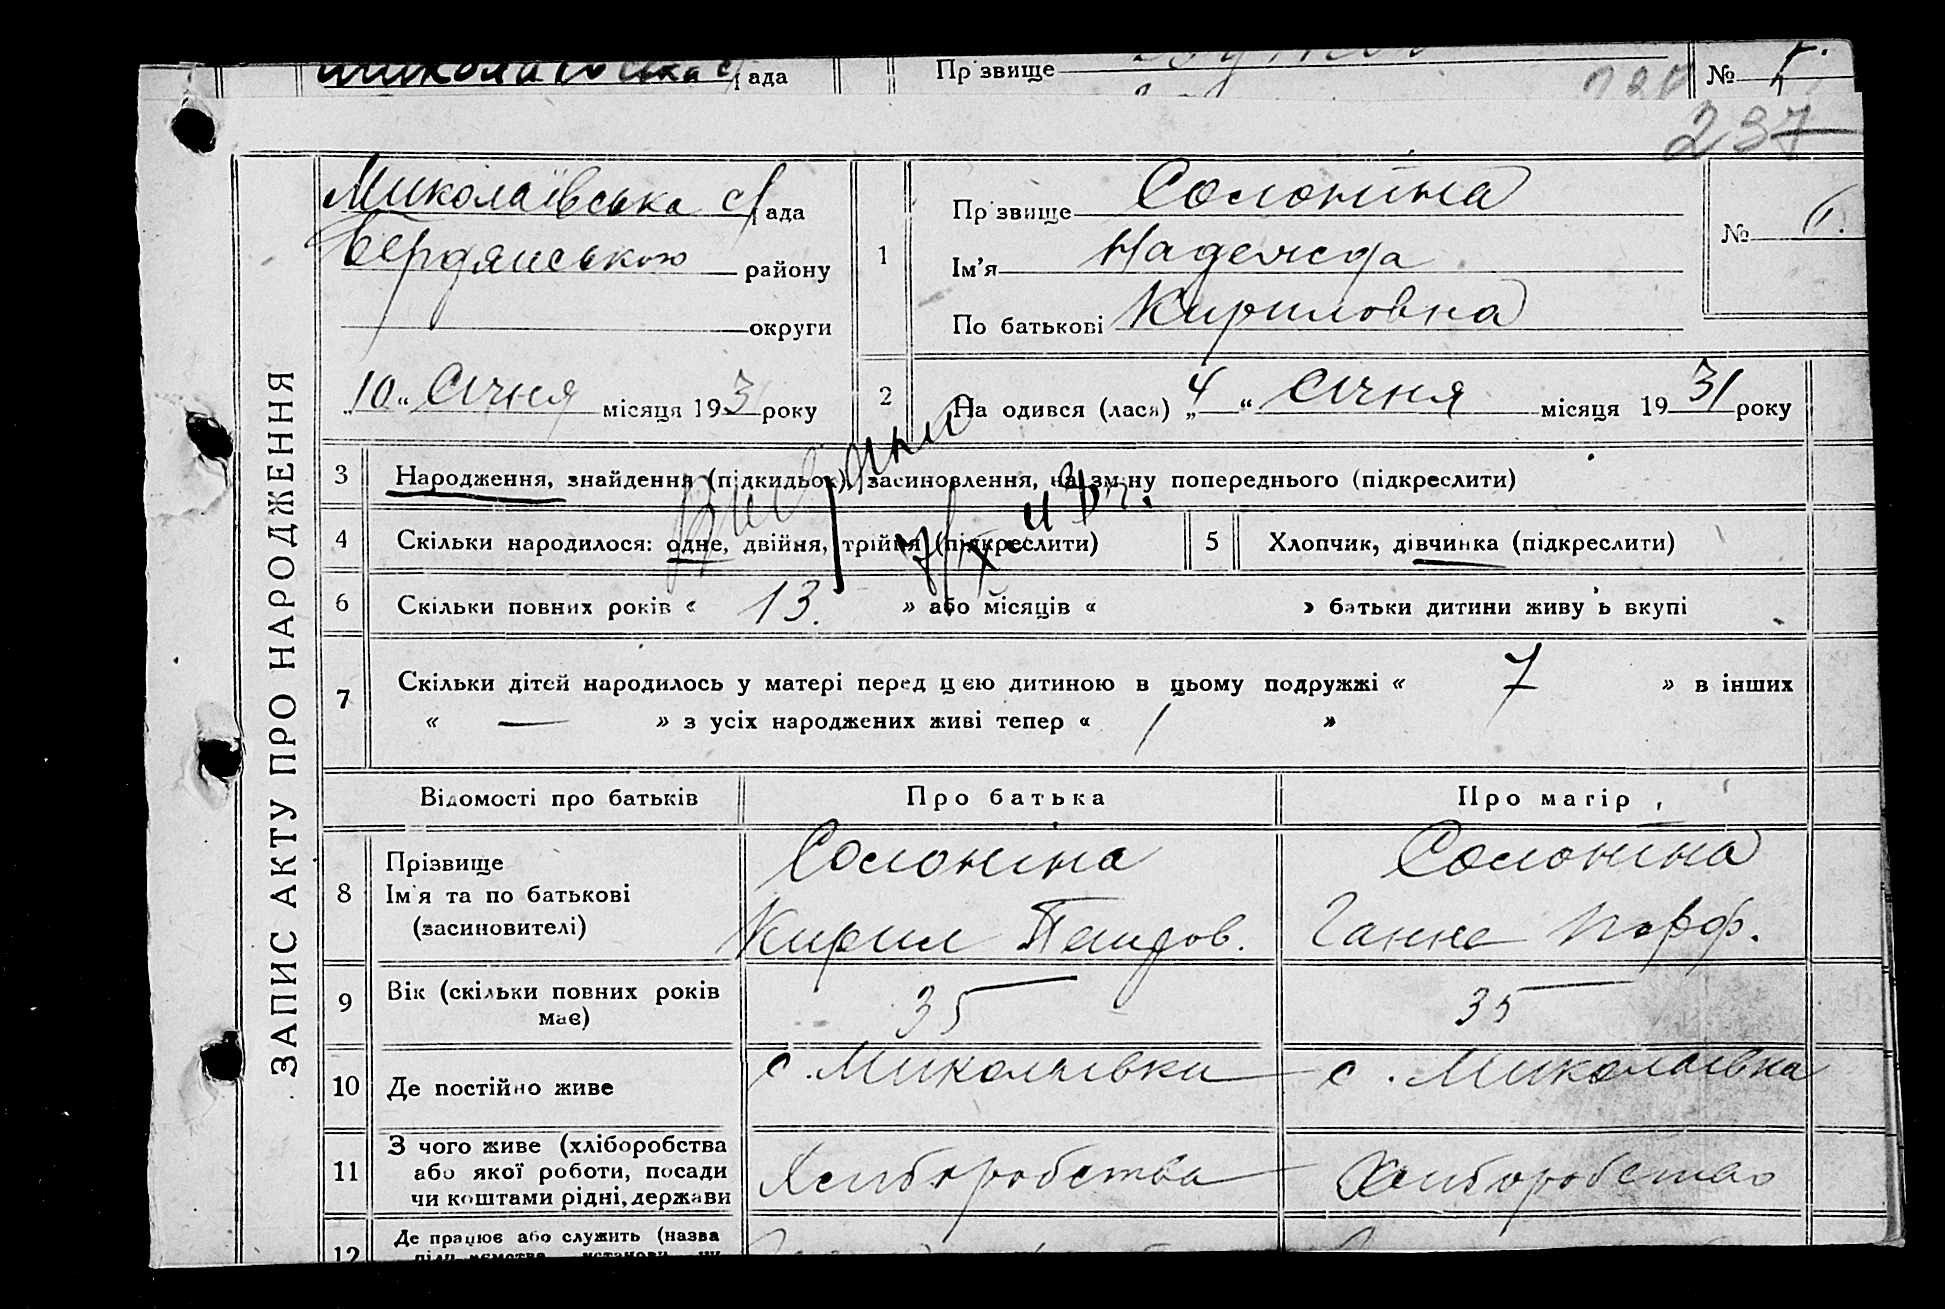 Миколаївська с/рада Прізвище №
237
ЗАПИС АКТУ ПРО НАРОДЖЕННЯ
Миколаївська с/рада
Бердянського району
округи
„10“ Січня місяця 1931 року
1
Прізвище Солоніна
Ім'я Надежда
По батькові Кириловна
№ 6.
2 Народився (лася) „4“ Січня місяця 1931 року
3 Народження, знайдення (підкидьок), засиновлення, на зміну попереднього (підкреслити)
4 Скільки народилося: одне, двійня, трійня (підкреслити) 5 Хлопчик, дівчинка (підкреслити)
6 Скільки повних років « 13. » або місяців « » батьки дитини живуть вкупі
7 Скільки дітей народилось у матері перед цією дитиною в цьому подружжі « 7 » в інших
« — » з усіх народжених живі тепер « 1 »
Відомості про батьків Про батька Про матір
8 Прізвище Ім'я та по батькові (засиновителі) Солоніна Кирил Солоніна Ганна Парф.
9 Вік (скільки повних років має) 35 35
10 Де постійно живе с. Миколаївка с. Миколаївка
11 З чого живе (хліборобства або якої роботи, посади чи коштами рідні, держави Хліборобства Хліборобства
12 Де працює або служить (назва